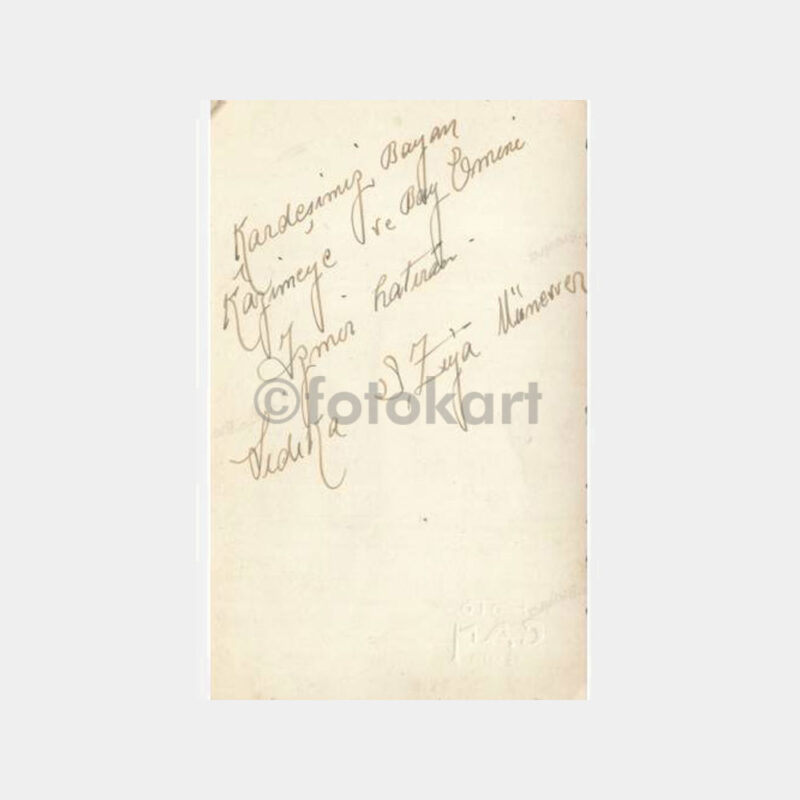 Kardeşimiz Bayan
Kazimeye ve Bay Emine
İzmir hatırası.
S, Ziya Münevver
Sıdıka
©fotokart